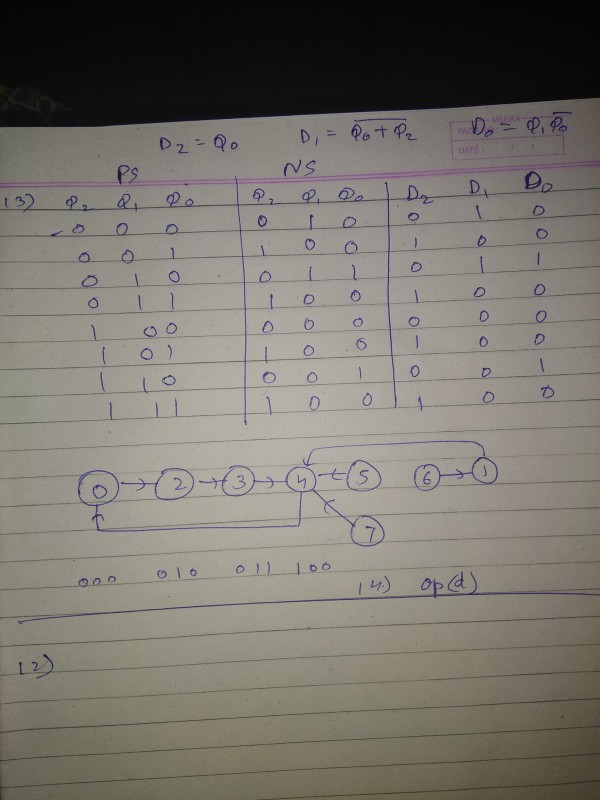 D₂ = Q₀ D₁ = \overline{Q₀ + Q₂} D₀ = Q₁\overline{Q₀}
DATE:
PS NS
13) Q₂ Q₁ Q₀ Q₂ Q₁ Q₀ D₂ D₁ D₀
0 0 0 0 1 0 0 1 0
0 0 1 1 0 0 1 0 0
0 1 0 0 1 1 0 1 1
0 1 1 1 0 0 1 0 0
1 0 0 0 0 0 0 0 0
1 0 1 1 0 0 1 0 0
1 1 0 0 0 1 0 0 1
1 1 1 1 0 0 1 0 0
0 → 2 → 3 → 4 ← 5 6 → 1
7
000 010 011 100
14) op(d)
12)